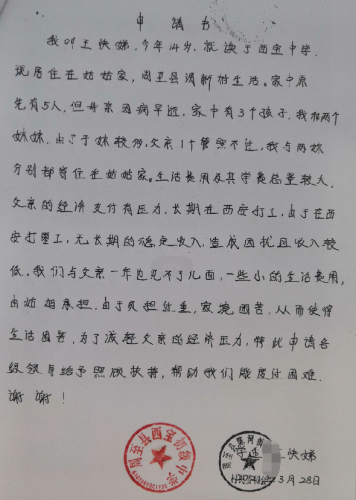 申请书
我叫王快娣,今年14岁,就读于西宝中学.
现居住在姑姑家,周至县清新村生活。家中原
先有5人,但母亲因病早逝,家中有3个孩子,我和两个
妹妹,由于子妹较多,父亲1个管照不过,我与两妹
分别都寄住在姑姑家。生活费用及其学费总量较大,
父亲的经济支付有压力,长期在西安打工,由于在西
安打零工,无长期的稳定收入,造成困扰且收入较
低。我们与父亲一年也见不了几面,一些小的生活费用,
由姑姑承担.由于负担纰重,家境困苦,从而使得
生活困苦,为了减轻父亲的经济压力,特此申请各
级领导给予照顾扶持,帮助我们度过困难.
谢谢!
周至县西宝初级中学
学生 王快娣
3月28日